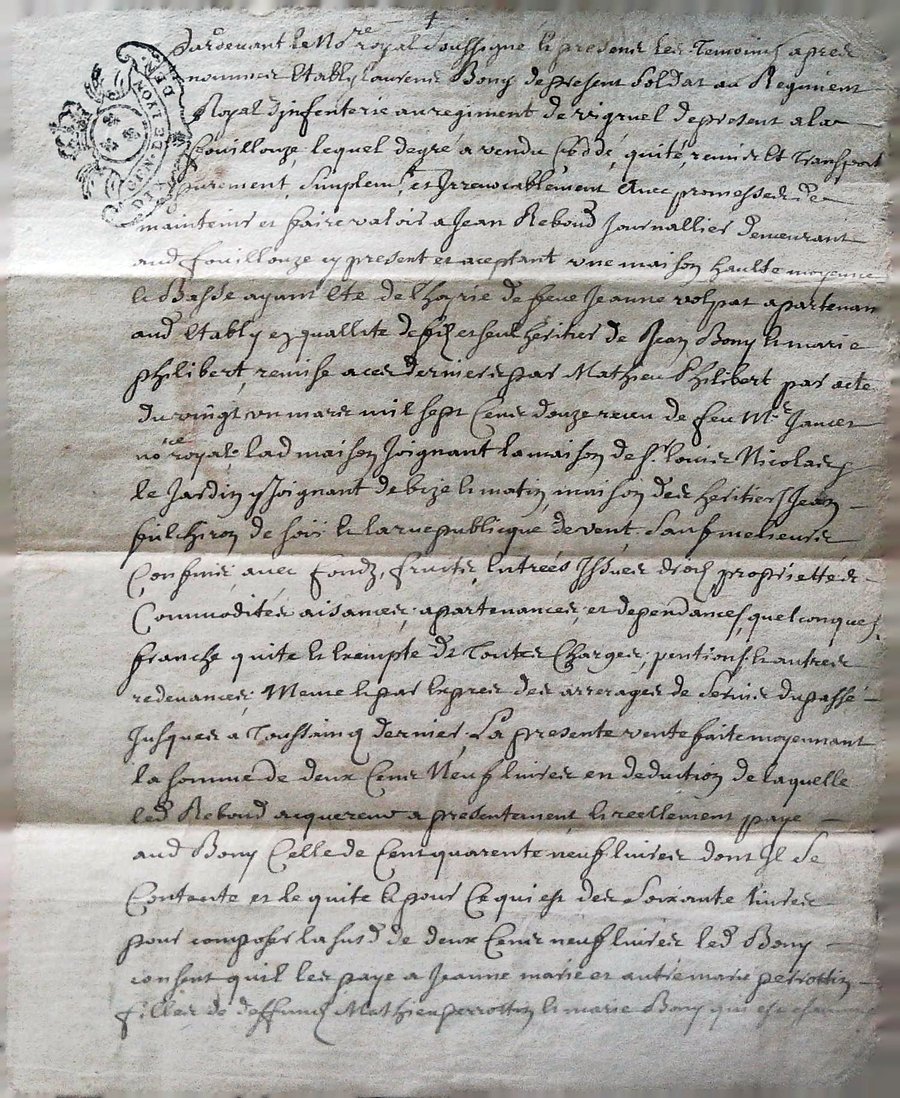 GEN. DE LYON DEN.
pardevant le No.re royal soussigné et presens les Temoins apres
nommes Etably laurens Bony de present soldat au Regiment
Royal d'infenterie au regiment de de present a la
fouillouze, lequel de gré a vendu Ceddé, quité, remis et Transporté
purement, simplem.t et Irrevocablement avec promesse de
maintenir et faire valoir a Jean Reboud Journallier demeurant
aud fouillouze cy present et aceptant une maison haulte moyenne
et Basse ayant été de l'hoyrie de feue Jeanne volpat apartenan
aud Etably en quallite de fil et seul heritier de Jean Bony et marie
philibert, remise a ces derniers par Mathieu Philibert par acte
du vingt un mars mil sept Cens douze receu de feu M.e Janet
no.re royal, lad maison Joignant la maison de S.r louis Nicolas
le Jardin y Joignant de bize et matin, maison des heritiers Jean
fulchiron de soir et la rue publicque de vent. Sauf meilleurs
Confins, avec fondz, fruits, Entrées Issues droits proprietés
Commodités aisances, apartenances, et dependances quelconques,
franche quite et Exempte de Toutes Charges, pentions et autres
redevances, Meme et par Expres des arrerages de servis du passé
Jusques a Toussaincq dernier, La presente vente faite moyennant
la somme de deux Cens Neuf livres en deduction de laquelle
led Reboud acquereur a presentement et reellement payé
aud Bony Celle de Cent quarente neuf livres dont Il se
Contante et le quite et pour Ce qui est des soixante livres
pour composer la susd de deux Cens neuf livres led Bony
consent quil les paye a Jeanne marie et autre marie perrottin
filles de deffuncq Mathieu perrottin et marie Bony qui est